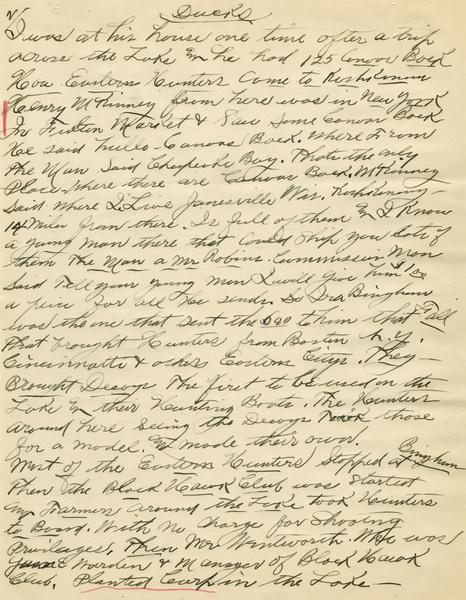 Ducks
I was at his house one time after a trip
across the Lake & he had 125 Canvas Back
How Eastern Hunters Came to Koshkonong
Henry McKinney from here was in New York
In Fulton Market & Saw some Canvas Back
He said hello Canvas Back. Where From
The Man Said Chesapeake Bay. Thats the only
Place Where there are Canvas Back. McKinney
Said where I Live Janesville Wis. Koshkonong
14 Miles from there. Is full of them & I Know
a young man there that Could Ship you lots of
them The Man a Mr Robins. Commission Man
Said Tell your young man I will give him 1 00
a pair for all he sends. So Ira Bingham
was the one that sent the 600 to him that Fall
That brought Hunters from Boston N.Y.
Cincinnatti & others Eastern Citys. They
Brought Decoys The first to be used on the
Lake & their Hunting Boats. The Hunters
around here Seeing the Decoys Took those
for a model. & made their own.
Most of the Eastern Hunters Stopped at Bingham
Then the Black Hawk Club was Started
Farmers around the Lake took Hunters
to Board. With no Charge for Shooting
Privileges. Then Mr Wentworth. Who was
Warden & Manager of Black Hawk
Club. Planted Carp in the Lake